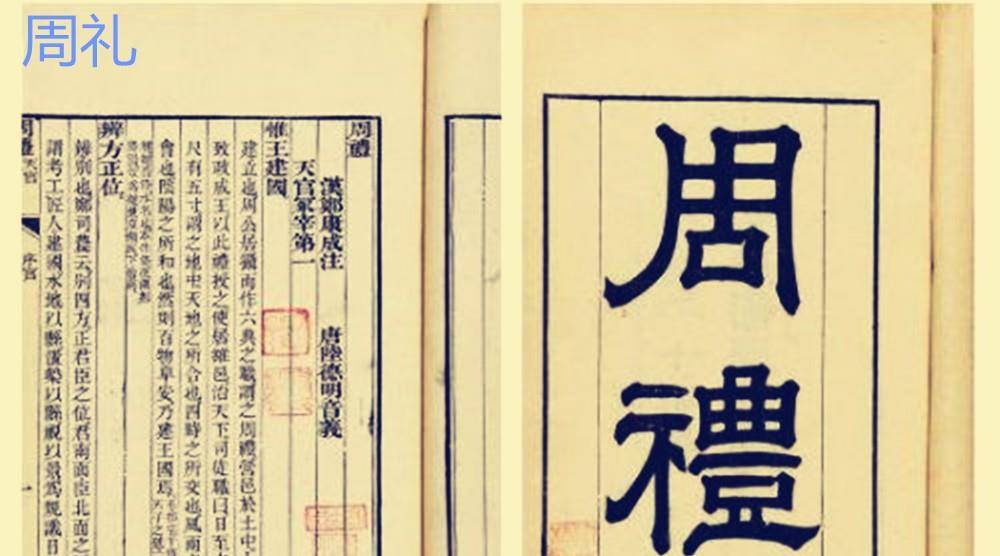 周礼
周禮
漢鄭康成注 唐陸德明音義
天官冢宰第一
惟王建國
建立也周公居攝而作六典之職謂之周禮營邑於土中
致政成王以此禮授之使居雒邑治天下司徒職曰日至
尺有五寸謂之地中天地之所合也四時之所交也風雨
會也陰陽之所和也然則百物阜安乃建王國焉
辨方正位
辨別也鄭司農云別四方正君臣之位君南面臣北面之
謂考工匠人建國水地以縣置槷以縣眡以景爲規識日
周禮
天官
序官
一
周禮